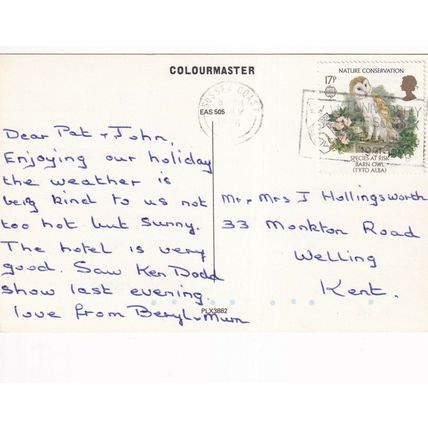 COLOURMASTER
EAS 505
NATURE CONSERVATION
17P
SPECIES AT RISK
BARN OWL
(TYTO ALBA)
Dear Pat & John,
Enjoying our holiday
the weather is
being kind to us not
too hot but sunny.
The hotel is very
good. Saw Ken Dodd
show last evening.
love from Beryl & Mum
Mr & Mrs J Hollingsworth
33 Monkton Road
Welling
Kent.
PLX3882